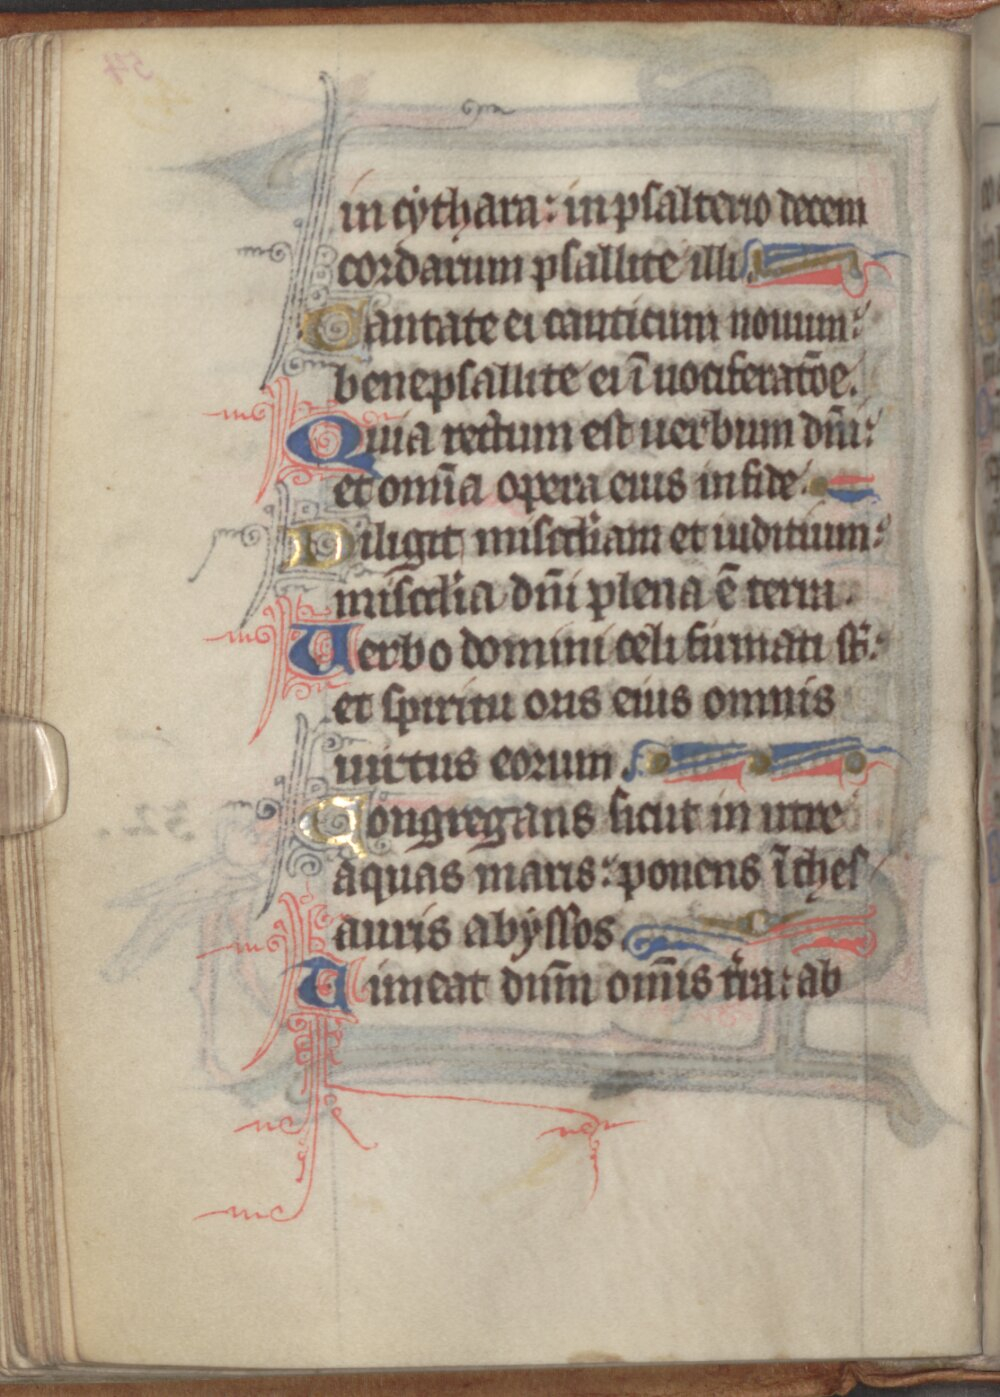 in cythara: in psalterio decem
cordarum psallite illi.
Cantate ei canticum nouum:
bene psallite ei ī uociferatōe.
Quia rectum est uerbum dn̄i:
et omīa opera eius in fide.
Diligit miscd'iam et iuditium:
miscd'ia dn̄i plena ē terra.
Uerbo domini celi firmati st̄:
et spiritu oris eius omnis
uirtus eorum.
Congregans sicut in utre
aquas maris: ponens ī thes
auris abyssos
Timeat dn̄m om̄is t'ra: ab